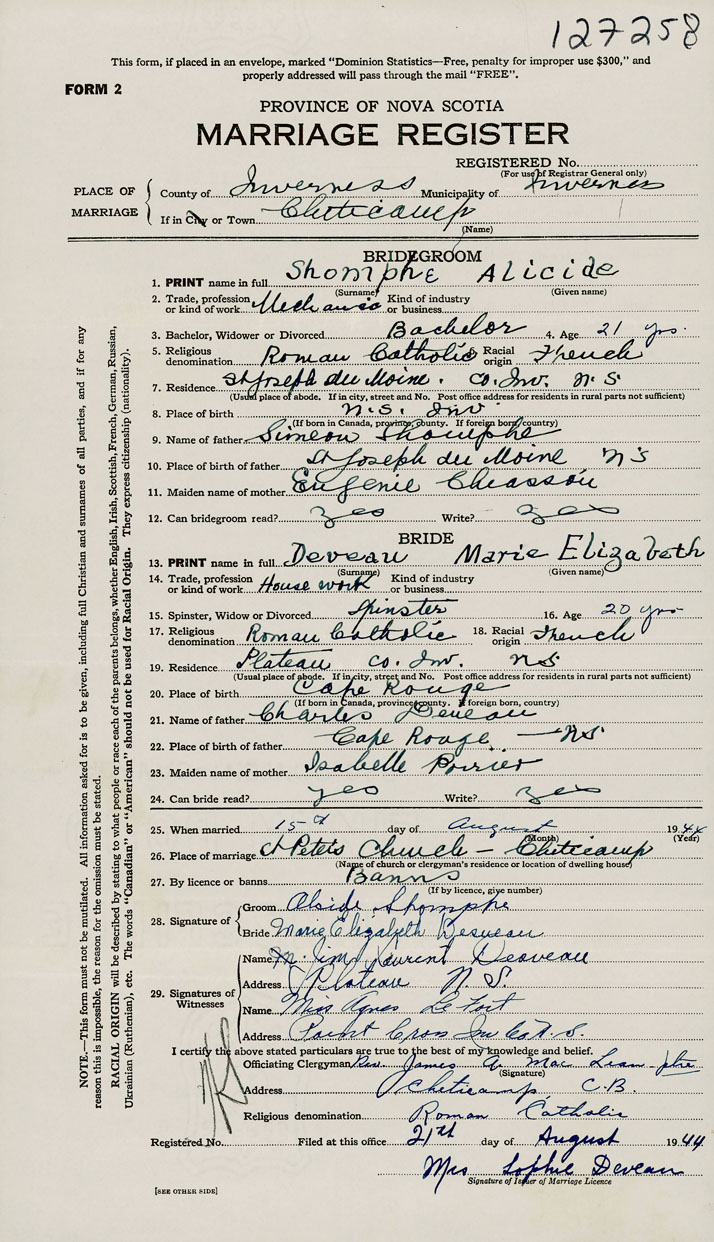 127258
This form, if placed in an envelope, marked “Dominion Statistics—Free, penalty for improper use $300,” and
properly addressed will pass through the mail “FREE”.
FORM 2
PROVINCE OF NOVA SCOTIA
MARRIAGE REGISTER
REGISTERED No.
(For use of Registrar General only)
PLACE OF MARRIAGE
County of Inverness Municipality of Inverness
If in City or Town Cheticamp
(Name)
BRIDEGROOM
1. PRINT name in full Shomphe Alicide
(Surname) (Given name)
2. Trade, profession or kind of work Mechanic Kind of industry or business
3. Bachelor, Widower or Divorced Bachelor 4. Age 21 yrs.
5. Religious denomination Roman Catholic Racial origin French
7. Residence St Joseph du Moine. Co. Inv. N. S
(Usual place of abode. If in city, street and No. Post office address for residents in rural parts not sufficient)
8. Place of birth N.S. Inv
(If born in Canada, province, county. If foreign born, country)
9. Name of father Simeon Shomphe
10. Place of birth of father St Joseph du Moine N S
11. Maiden name of mother Eugenie Chiasson
12. Can bridegroom read? yes Write? yes
BRIDE
13. PRINT name in full Deveau Marie Elizabeth
(Surname) (Given name)
14. Trade, profession or kind of work House work Kind of industry or business
15. Spinster, Widow or Divorced Spinster 16. Age 20 yrs
17. Religious denomination Roman Catholic 18. Racial origin French
19. Residence Plateau Co. Inv. N S
(Usual place of abode. If in city, street and No. Post office address for residents in rural parts not sufficient)
20. Place of birth Cape Rouge
(If born in Canada, province, county. If foreign born, country)
21. Name of father Charles Deveau
22. Place of birth of father Cape Rouge — N S
23. Maiden name of mother Isabelle Poirier
24. Can bride read? yes Write? yes
25. When married 15th day of August 1944
(Month) (Year)
26. Place of marriage St Peters Church — Cheticamp
(Name of church or clergyman's residence or location of dwelling house)
27. By licence or banns Banns
(If by licence, give number)
28. Signature of
Groom Alside Shomphe
Bride Marie Elizabeth Desveau
29. Signatures of Witnesses
Name M. Jim Laurent Desveau
Address Plateau N. S.
Name Miss Agnes LeFort
Address Point Cross Inv Co N. S.
I certify the above stated particulars are true to the best of my knowledge and belief.
Officiating Clergyman Rev. James A. Mac Lean ptre
(Signature)
Address Cheticamp, C.B.
Religious denomination Roman Catholic
Registered No. Filed at this office 21th day of August 1944
Mrs Sophie Deveau
Signature of Issuer of Marriage Licence
[SEE OTHER SIDE]
NOTE.—This form must not be mutilated. All information asked for is to be given, including full Christian and surnames of all parties, and if for any
reason this is impossible, the reason for the omission must be stated.
RACIAL ORIGIN will be described by stating to what people or race each of the parents belongs, whether English, Irish, Scottish, French, German, Russian,
Ukrainian (Ruthenian), etc. The words “Canadian” or “American” should not be used for Racial Origin. They express citizenship (nationality).